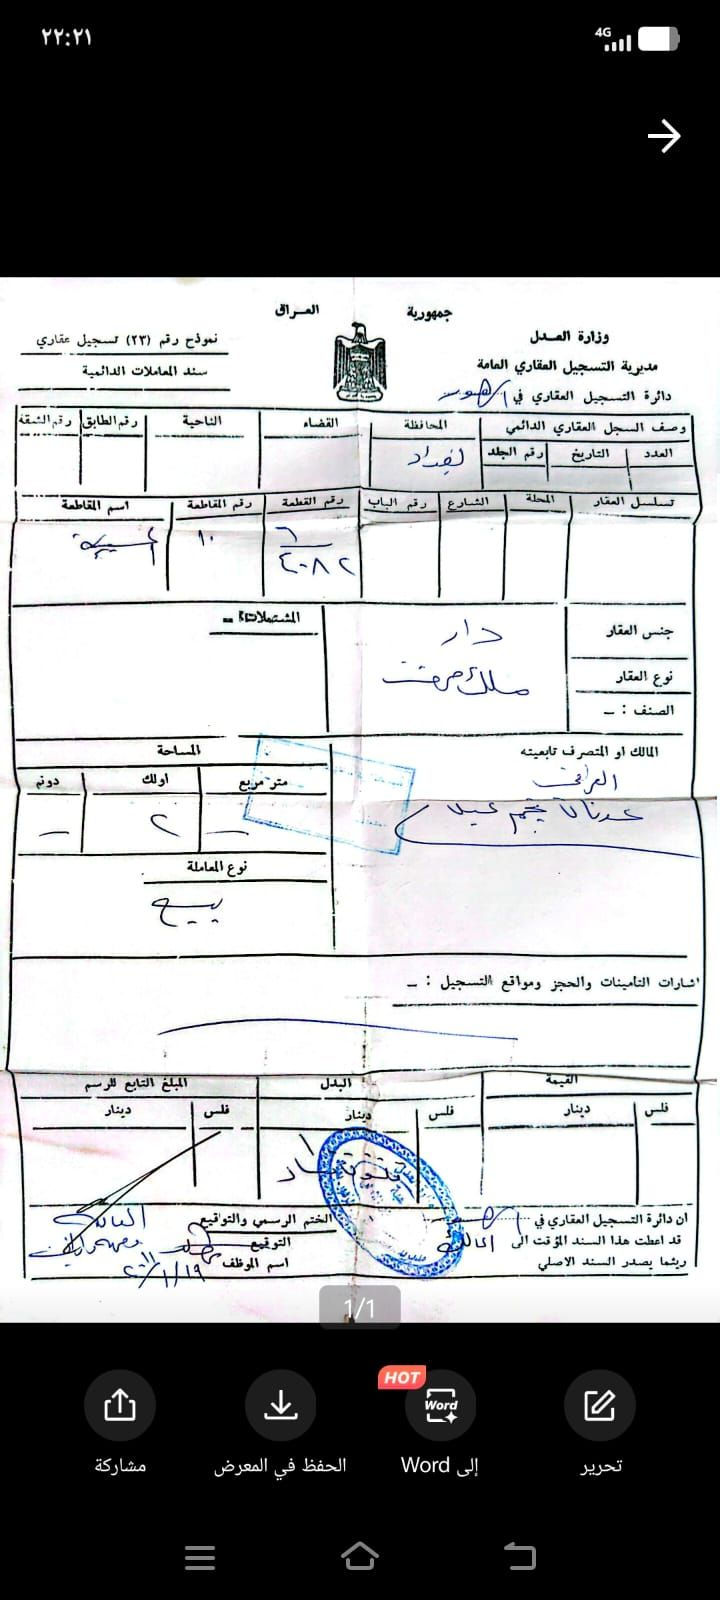 ٢٢:٢١
4G
جمهورية العراق
وزارة العدل
مديرية التسجيل العقاري العامة
دائرة التسجيل العقاري في
نموذج رقم (٢٣) تسجيل عقاري
سند المعاملات الدائمية
وصف السجل العقاري الدائمي المحافظة القضاء الناحية رقم الطابق رقم الشقة
العدد التاريخ رقم الجلد بغداد
تسلسل العقار المحلة الشارع رقم الباب رقم القطعة رقم المقاطعة اسم المقاطعة
٦ ١٠
٤٠٨٢
جنس العقار دار
نوع العقار ملك صرف
الصنف : ــ
المشتملات :ــ
المالك او المتصرف تابعيته
العراقي
عدنان نجم
المساحة
متر مربع اولك دونم
ــ ٢ ــ
نوع المعاملة
بيع
اشارات التأمينات والحجز ومواقع التسجيل : ــ
القيمة البدل المبلغ التابع للرسم
فلس دينار فلس دينار فلس دينار
ان دائرة التسجيل العقاري في
قد اعطت هذا السند المؤقت الى المالك
ريثما يصدر السند الاصلي
الختم الرسمي والتواقيع
التوقيع
اسم الموظف
1/1
HOT
Word
تحرير
إلى Word
الحفظ في المعرض
مشاركة